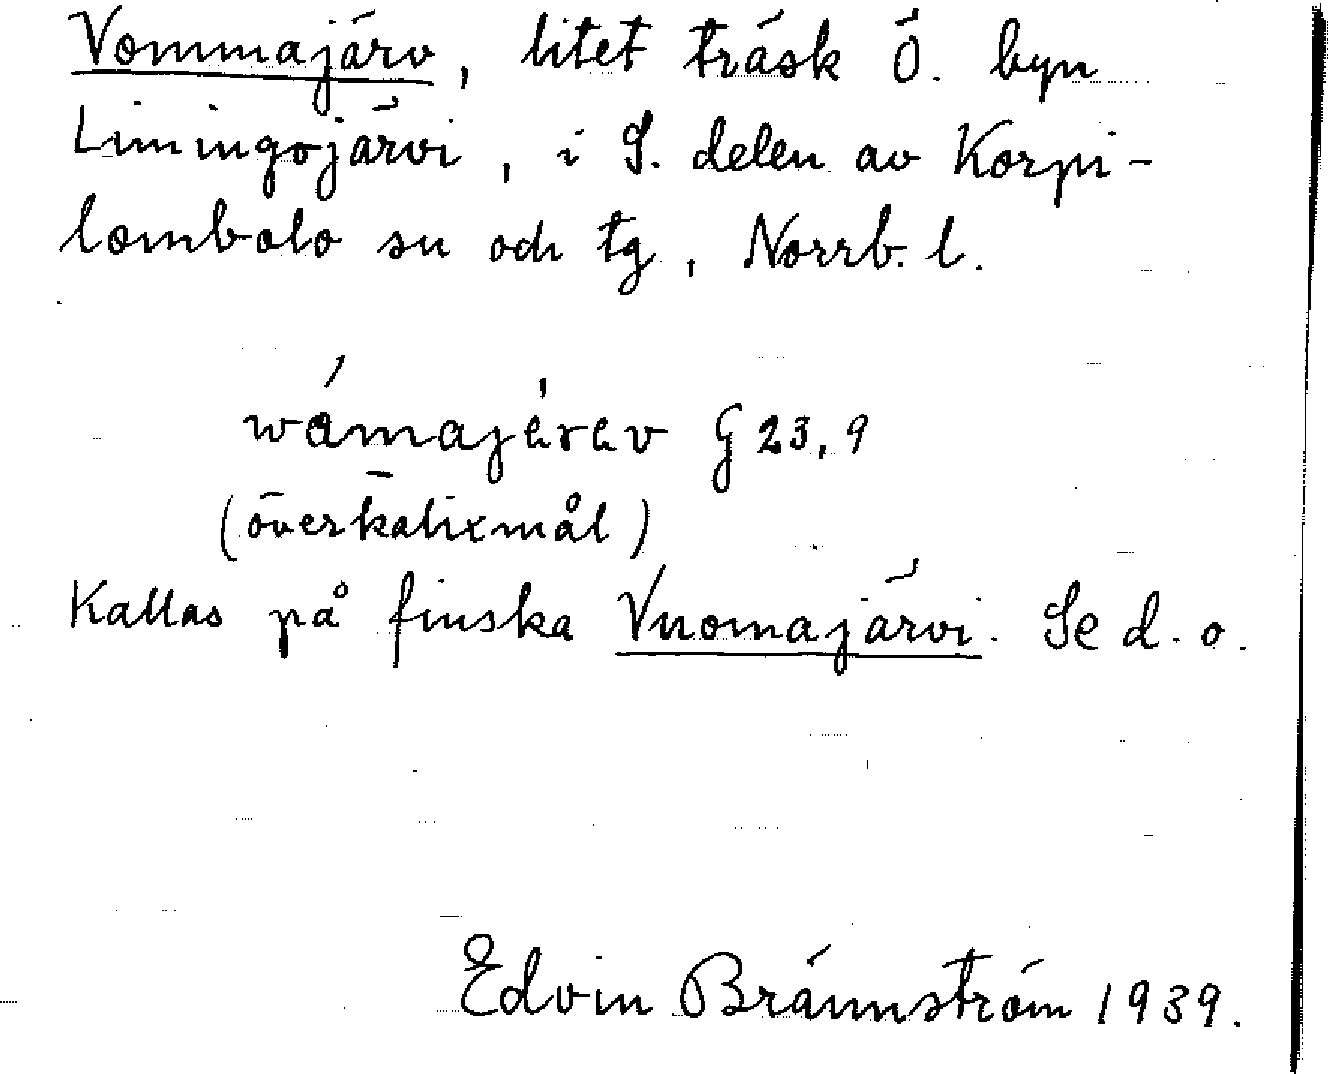 Vommajärv, litet träsk Ö. byn
Limingojärvi, i S. delen av Korpi-
lombolo sn och tg, Norrb. l.
wåmajärav G 23,9
(överkalixmål)
Kallas på finska Vuomajärvi. Se d. o.
Edvin Brännström 1939.